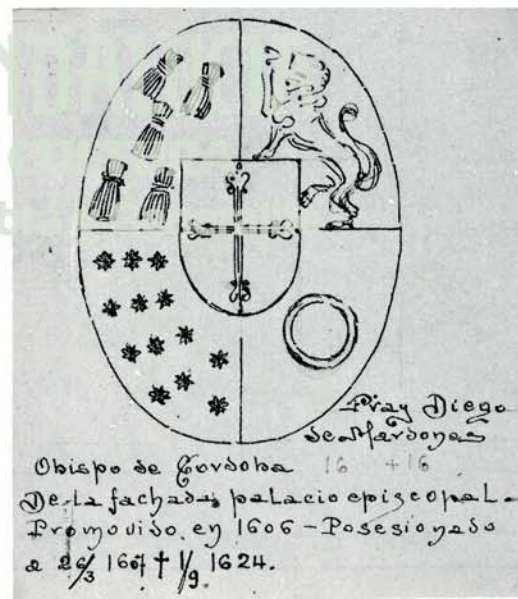 Fray Diego
de Mardones
Obispo de Cordoba 16 +16
De la fachada, palacio episcopal.
Promovido en 1606 - Posesionado
a 26/3 1607 † 1/9. 1624.